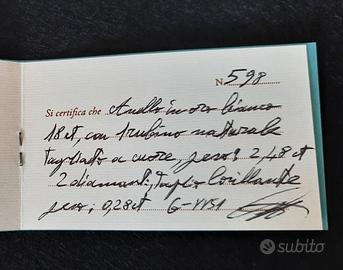 N. 598
Si certifica che Anello in oro bianco
18 ct, con 1 rubino naturale
tagliato a cuore, peso: 2,48 ct
2 diamanti, taglio brillante
peso; 0,28 ct G-VVS1
subito